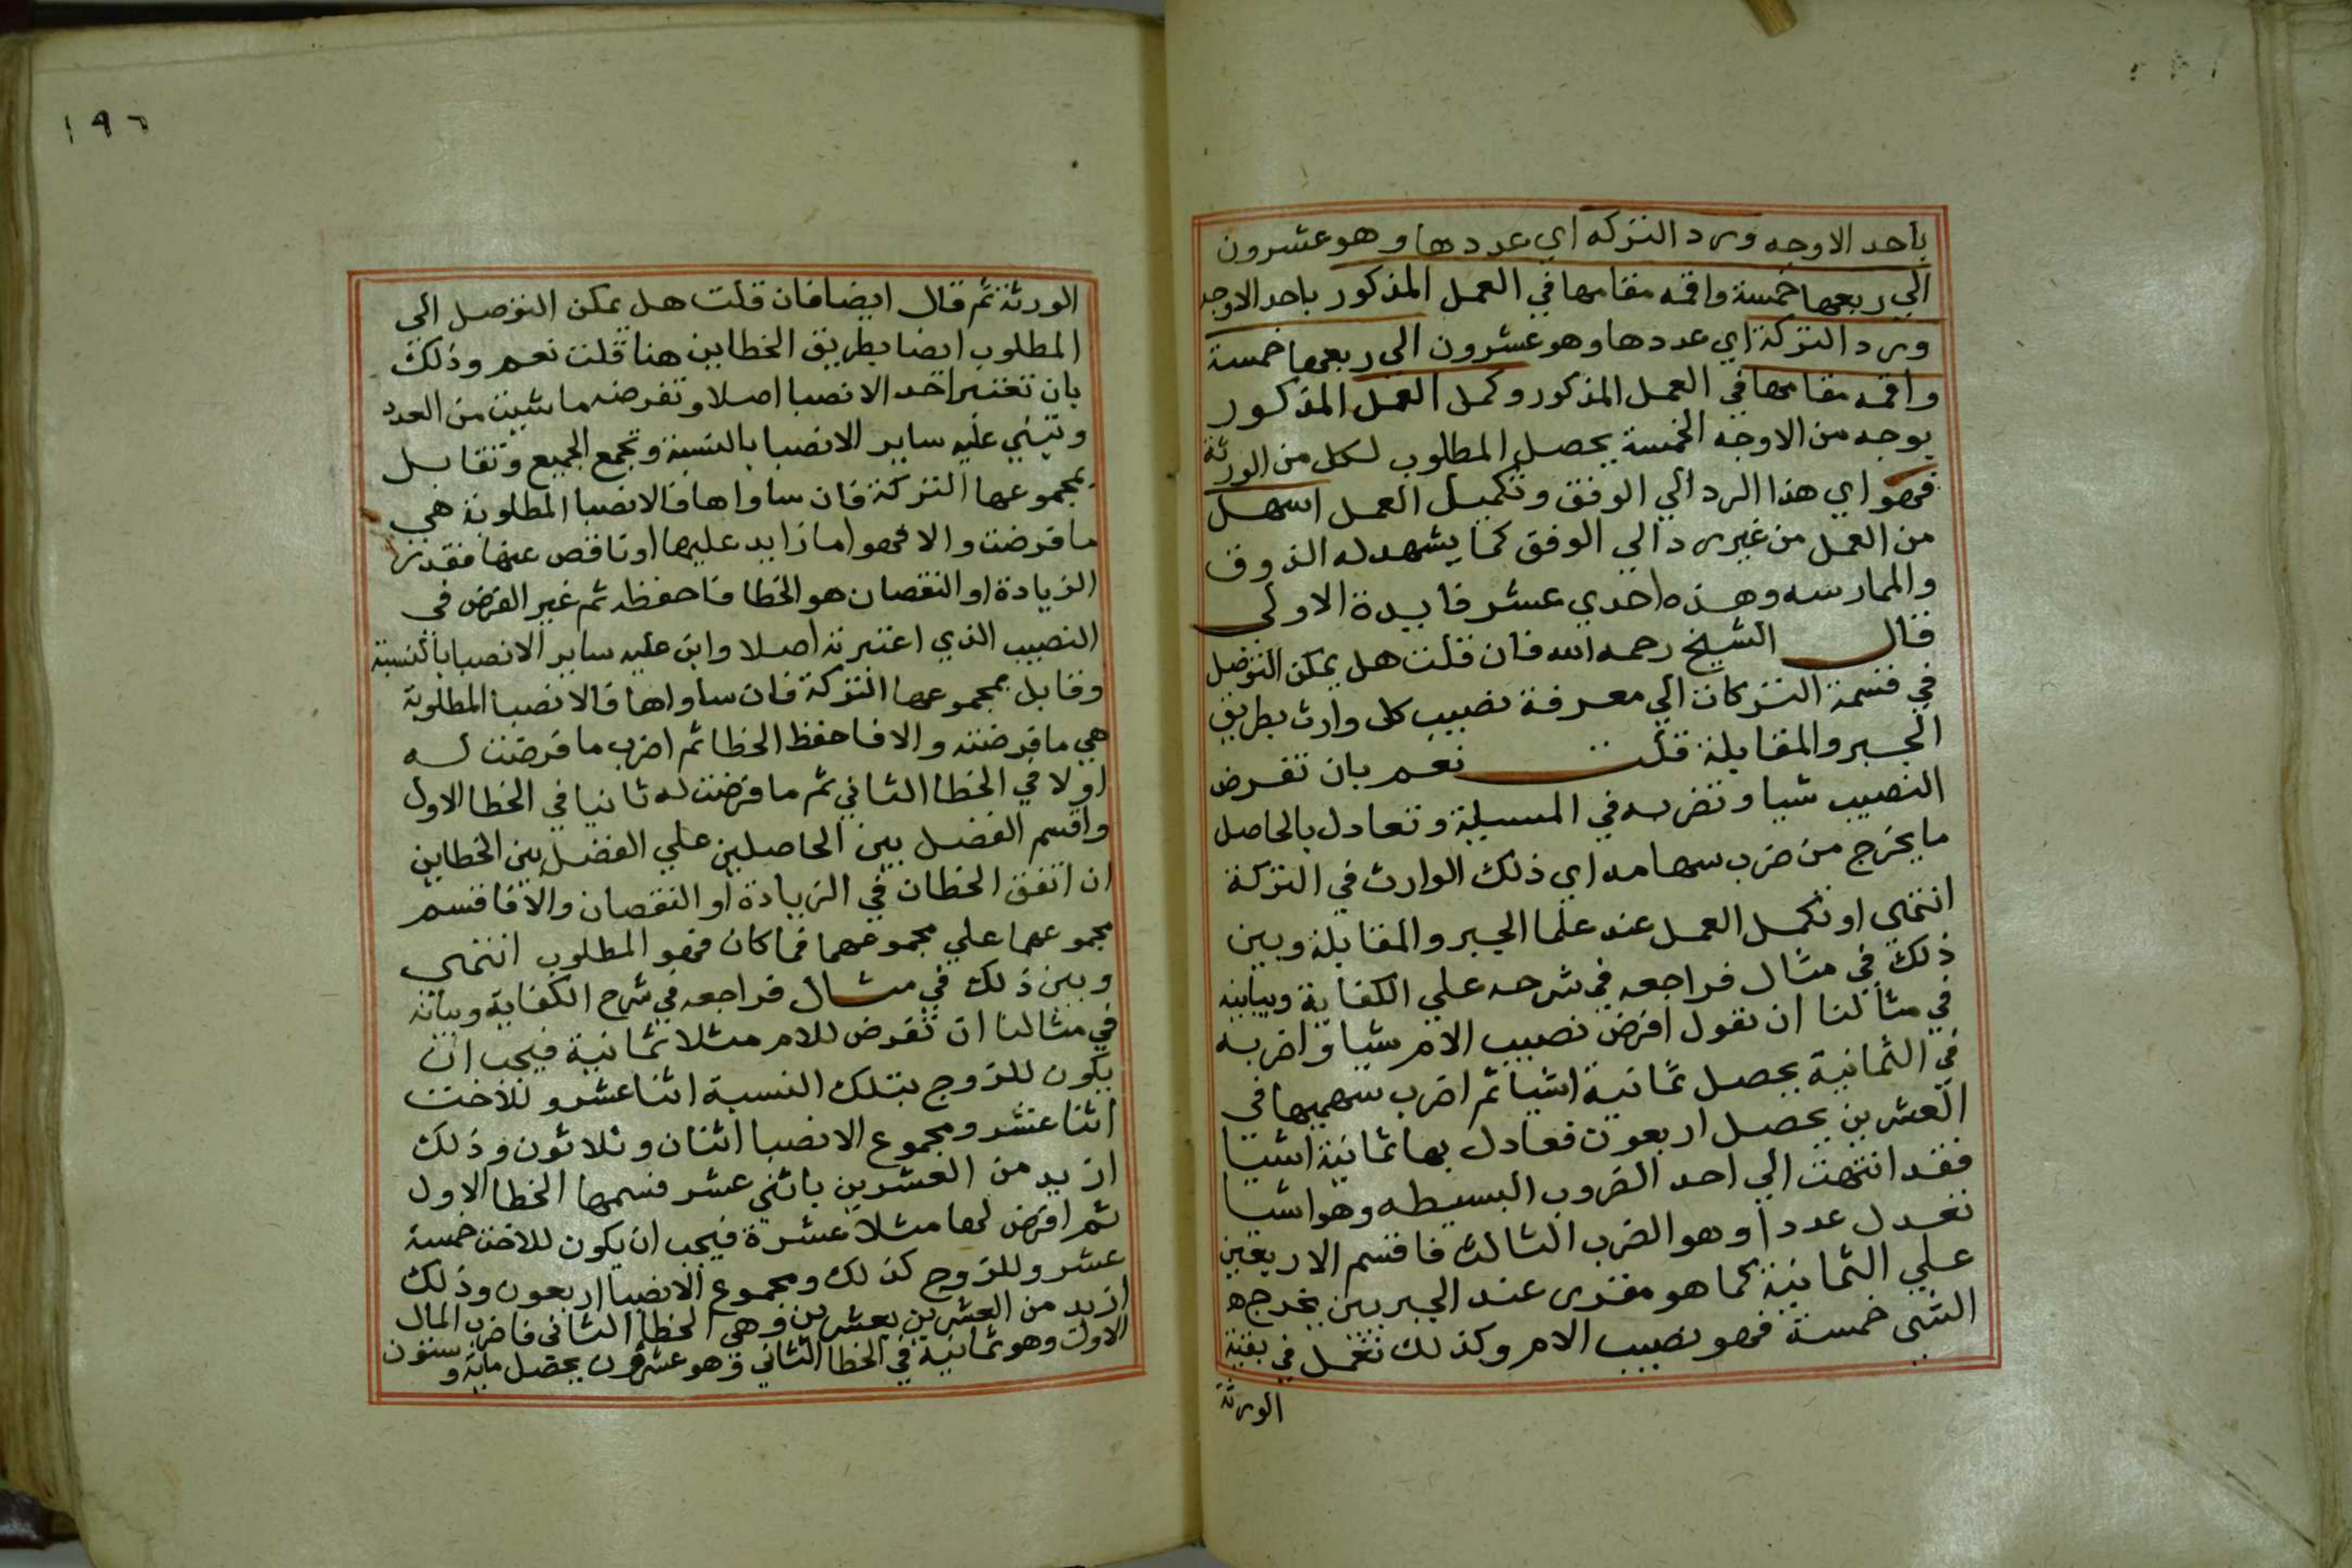 باحد الاوجه ورد التركه اي عددها وهو عشرون
الي ربعها خمسة واقمه مقامها في العمل المذكور باحد الاوجه
ورد التركة اي عددها وهو عشرون الي ربعها خمسة
واقمه مقامها في العمل المذكور وكمل العمل المذكور
بوجه من الاوجه الخمسة يحصل المطلوب لكل من الورثة
فهو اي هذا الرد الي الوفق وتكميل العمل اسهل
من العمل من غير رد الي الوفق كما يشهد له الذوق
والممارسه وهذه احدي عشر فايدة الاولى
قال الشيخ رحمه الله فان قلت هل يمكن التوصل
في قسمة التركات الي معرفة نصيب كل وارث بطريق
الجبر والمقابلة قلت نعم بان تفرض
النصيب شيا وتضربه في المسيلة وتعادل بالحاصل
ما يخرج من ضرب سهامه اي ذلك الوارث في التركة
انتهى او تكمل العمل عند علما الجبر والمقابلة وبين
ذلك في مثال فراجعه في شرحه علي الكفاية وبيانه
في مثالنا ان نقول افرض نصيب الام شيا واضربه
في الثمانية يحصل ثمانية اشيا ثم اضرب سهميها في
العشرين يحصل اربعون فعادل بها ثمانية اشيا
فقد انتهت الي احد الضروب البسيطه وهو اشيا
تعدل عددا وهو الضرب الثالث فاقسم الاربعين
علي الثمانية كما هو مقرر عند الجبريين يخرج
الشي خمسة فهو نصيب الام وكذلك تعمل في بقية
الورثة
١٩٦
الورثة ثم قال ايضا فان قلت هل يمكن التوصل الي
المطلوب ايضا بطريق الخطاين هنا قلت نعم وذلك
بان تعتبر احد الانصبا اصلا وتفرضه ما شيت من العدد
وتبني عليه ساير الانصبا بالنسبة وتجمع الجميع وتقابل
بمجموعها التركة فان ساواها فالانصبا المطلوبة هي
ما فرضت والا فهو اما زايد عليها او ناقص عنها فقدر
الزيادة او النقصان هو الخطا فاحفظه ثم غير الفرض في
النصيب الذي اعتبرته اصلا وابن عليه ساير الانصبا بالنسبة
وقابل بمجموعها التركة فان ساواها فالانصبا المطلوبة
هي ما فرضته والا فاحفظ الخطا ثم اضرب ما فرضت له
اولا في الخطا الثاني ثم ما فرضت له ثانيا في الخطا الاول
واقسم الفضل بين الحاصلين علي الفضل بين الخطاين
ان اتفق الخطان في الزيادة او النقصان والا فاقسم
مجموعهما علي مجموعهما فما كان فهو المطلوب انتهى
وبين ذلك في مثال فراجعه في شرح الكفاية وبيانه
في مثالنا ان تفرض للام مثلا ثمانية فيجب ان
يكون للزوج بتلك النسبة اثنا عشر وللاخت
اثنا عشر ومجموع الانصبا اثنان وثلاثون وذلك
ازيد من العشرين باثني عشر فسمها الخطا الاول
ثم افرض لها مثلا عشرة فيجب ان يكون للاخت خمسة
عشر وللزوج كذلك ومجموع الانصبا اربعون وذلك
ازيد من العشرين بعشرين وهي الخطا الثاني فاضرب المال
الاول وهو ثمانية في الخطا الثاني وهو عشرون يحصل ماية وستون